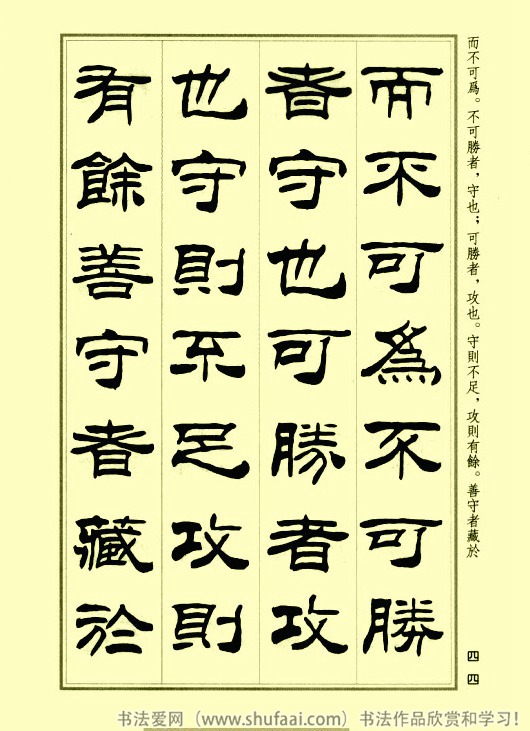 而不可爲。不可勝者，守也；可勝者，攻也。守則不足，攻則有餘。善守者藏於
而不可爲不可勝
者守也可勝者攻
也守則不足攻則
有餘善守者藏於
四四
书法爱网（www.shufaai.com）书法作品欣赏和学习！